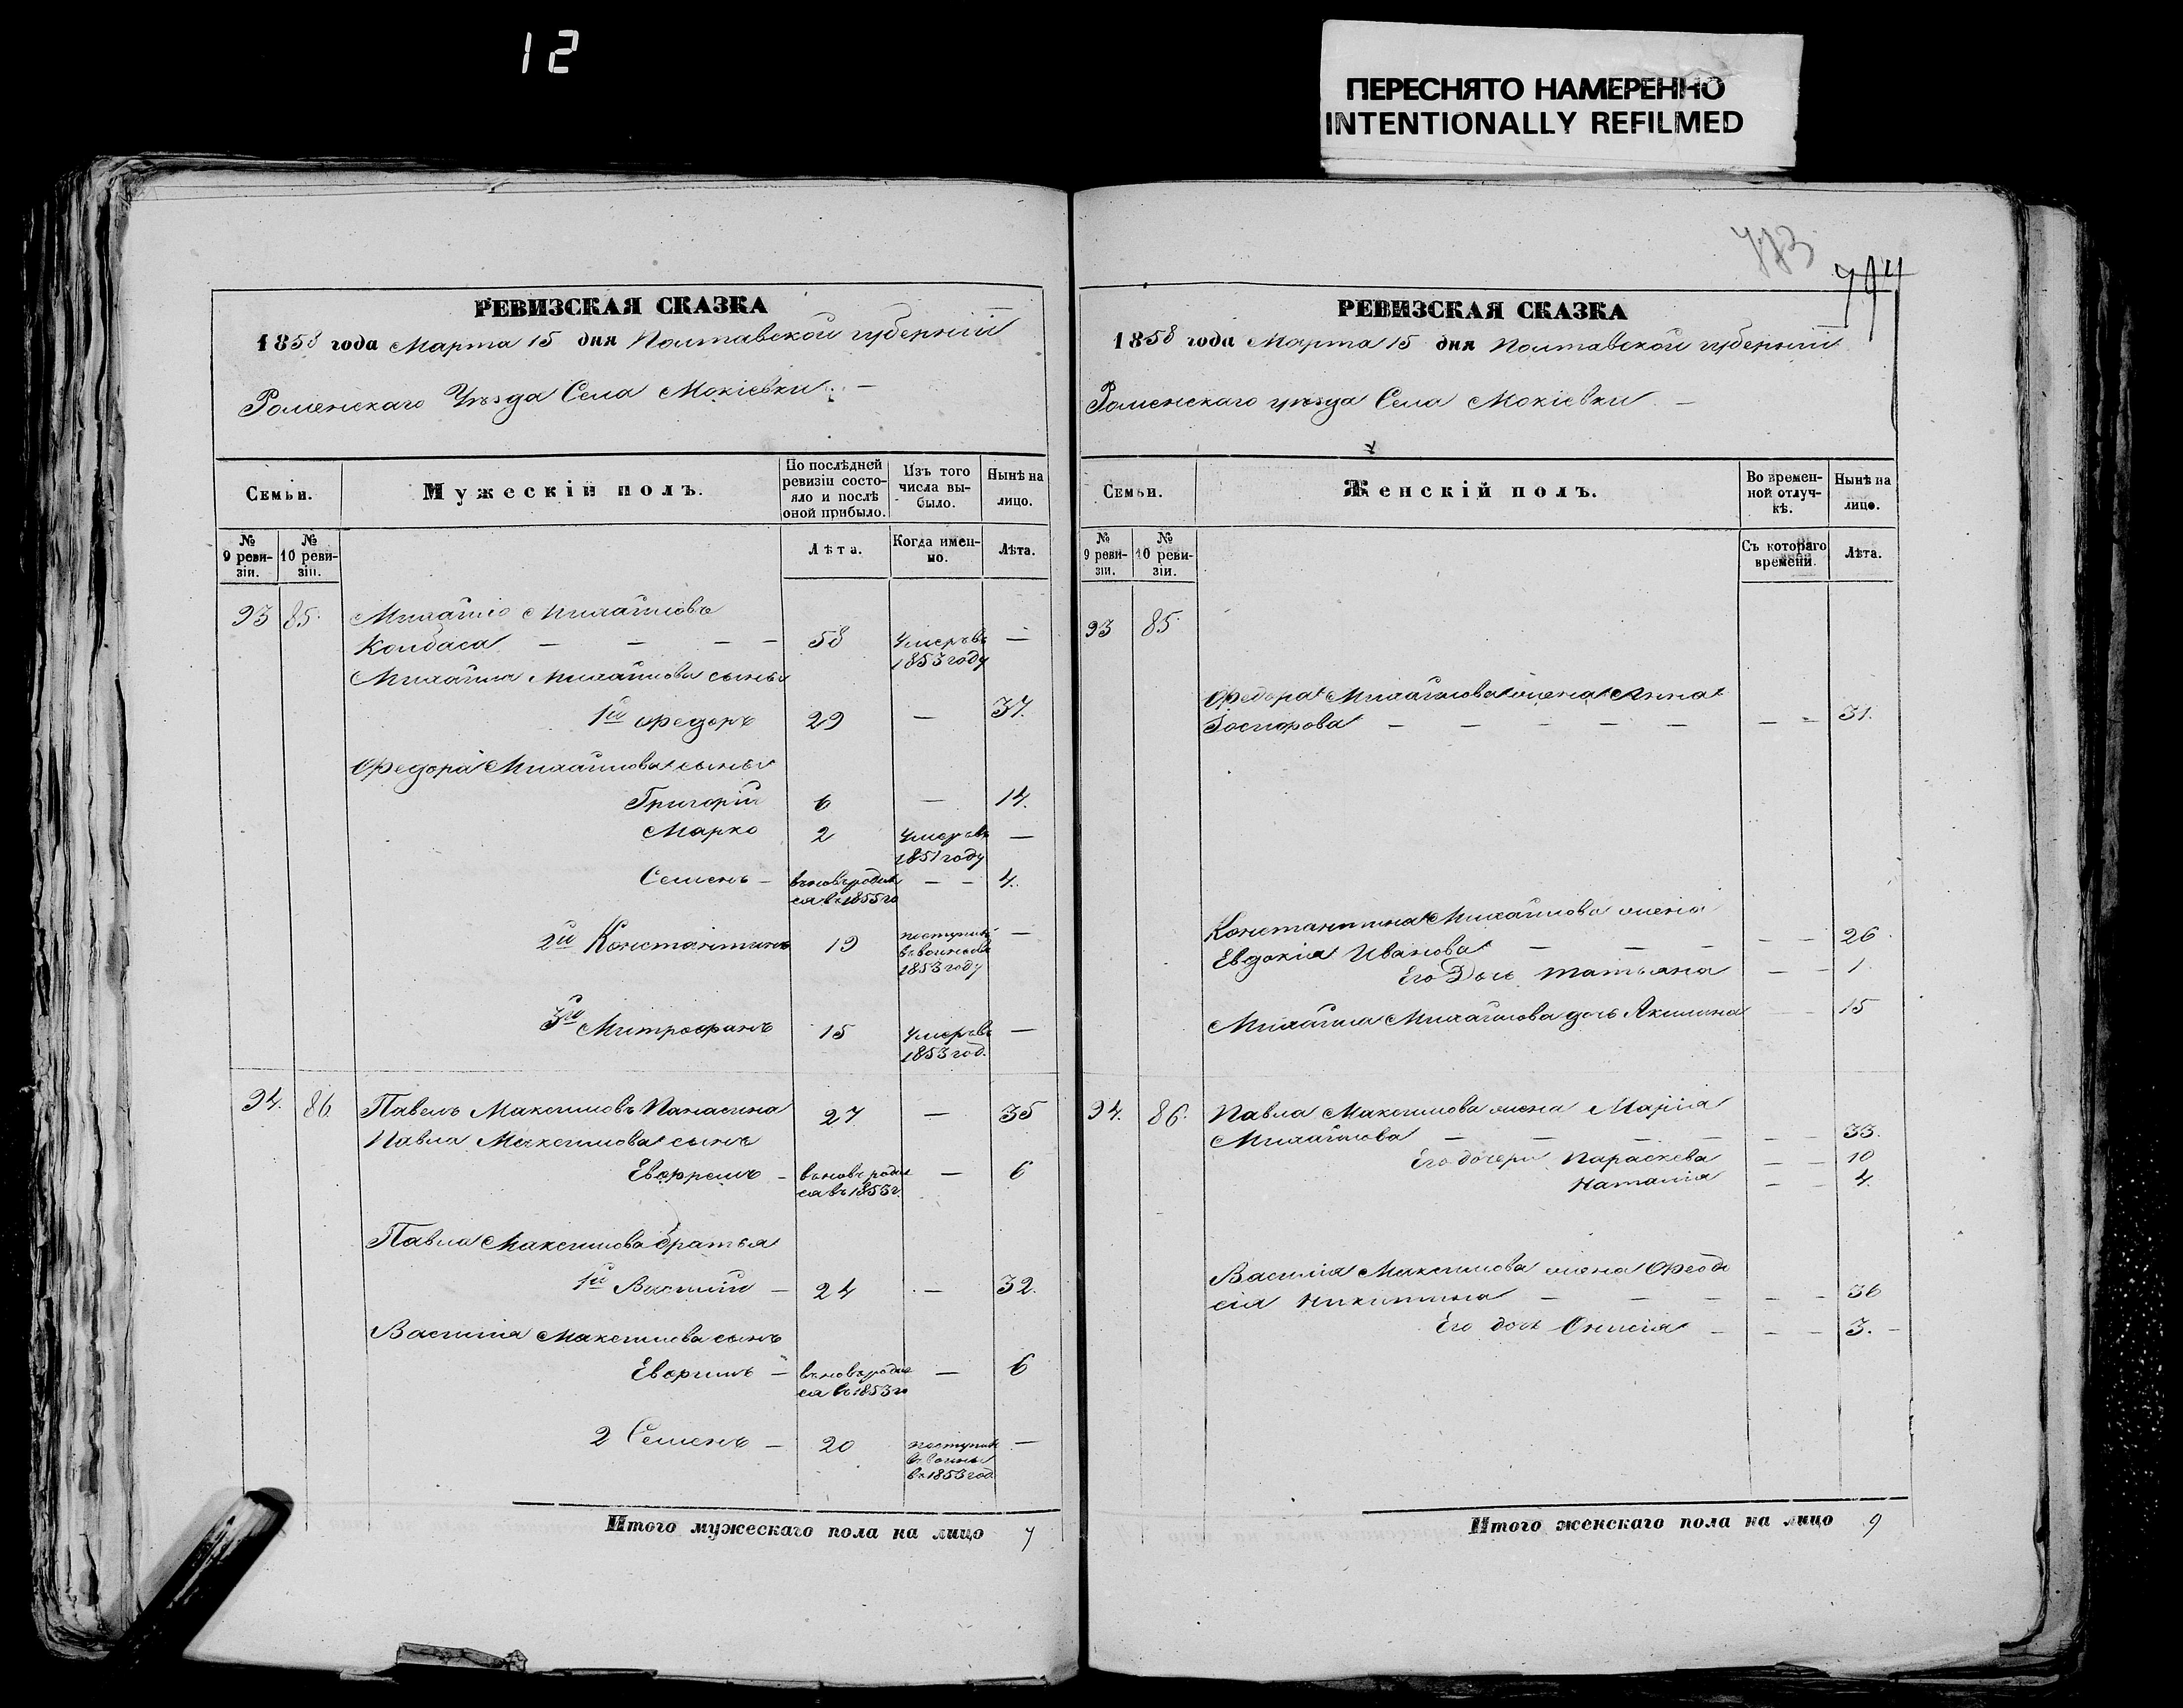 12
ПЕРЕСНЯТО НАМЕРЕННО
INTENTIONALLY REFILMED
РЕВИЗСКАЯ СКАЗКА
1858 года Марта 15 дня Полтавской губерніи
Роменскаго Уѣзда Села Мокіевки. —
Семьи.
Мужескій полъ.
По послѣдней ревизіи состояло и послѣ оной прибыло.
Изъ того числа выбыло.
Нынѣ на лицо.
№ 9 ревизіи.
№ 10 ревизіи.
Лѣта.
Когда именно.
Лѣта.
93 85. Михайло Михайловъ
Колбаса — — — — 58 Умеръ въ 1853 году —
Михайла Михайлова сынъ
1й Федоръ 29 — 37.
Федора Михайлова сыны
Григорій 6 — 14.
Марко 2 Умеръ въ 1851 году —
Семенъ — вновь родился въ 1855 го — — 4.
2й Константинъ 19 поступилъ 1853 году —
3й Митрофанъ 15 Умеръ въ 1853 год. —
94. 86 Павелъ Максимовъ Панасина 27 — 35
Павла Максимова сынъ
Евфремъ — вновь родил ся въ 1853 г. — 6
Павла Максимова братья
1й Василий — 24 — 32.
Василія Максимова сынъ
Евфимъ — вновь родил ся въ 1853 го — 6
2 Семенъ — 20 поступилъ въ 1853 год —
Итого мужескаго пола на лицо 7
773
774
РЕВИЗСКАЯ СКАЗКА
1858 года Марта 15 дня Полтавской губерніи
Роменскаго уѣзда Села Мокіевки. —
Семьи.
Женскій полъ.
Во временной отлучкѣ.
Нынѣ на лицо.
№ 9 ревизіи.
№ 10 ревизіи.
Съ котораго времени.
Лѣта.
93 85.
Федора Михайлова жена Анна
— — — — — — — 31.
Константина Михайлова жена
Евдокія Иванова — — — — — 26
Его Дочь Татьяна — — 1.
Михайла Михайлова дочь Акилина — — 15
94. 86. Павла Максимова жена Марія
Михайлова — — — — — — 33.
Его дочери Параскева — — 10
Наталія — — 4.
Василія Максимова жена Феодо
сія Никитина — — — — — 36
Его дочь Онисія — — — 3. —
Итого женскаго пола на лицо 9